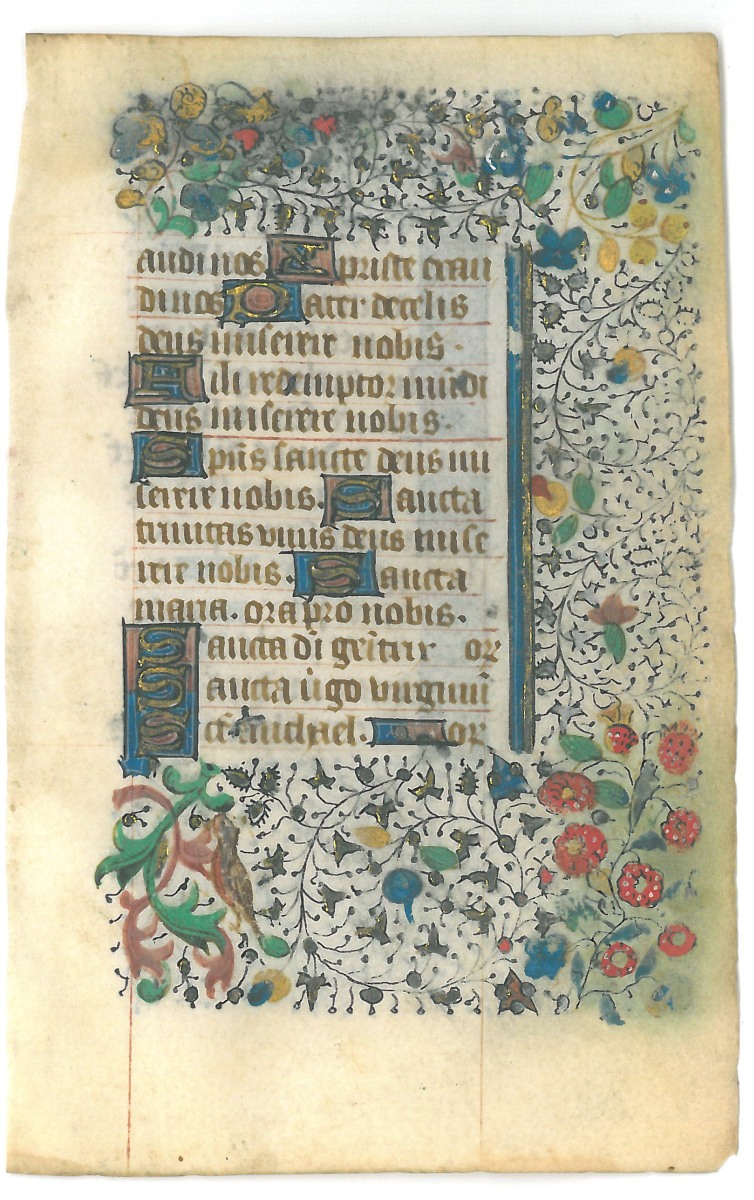 audi nos. Xpriste exau
di nos Pater de celis
deus miserere nobis.
Fili redemptor mũdi
deus miserere nobis.
Spũs sancte deus mi
serere nobis. Sancta
trinitas vnus deus mise
rere nobis. Sancta
maria. ora pro nobis.
Sancta dĩ genitrix or
Sancta ũgo virginũ
Sc̃e michael. or